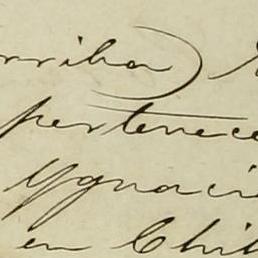 rriba)
pertenece
Ygnaci
en Chil